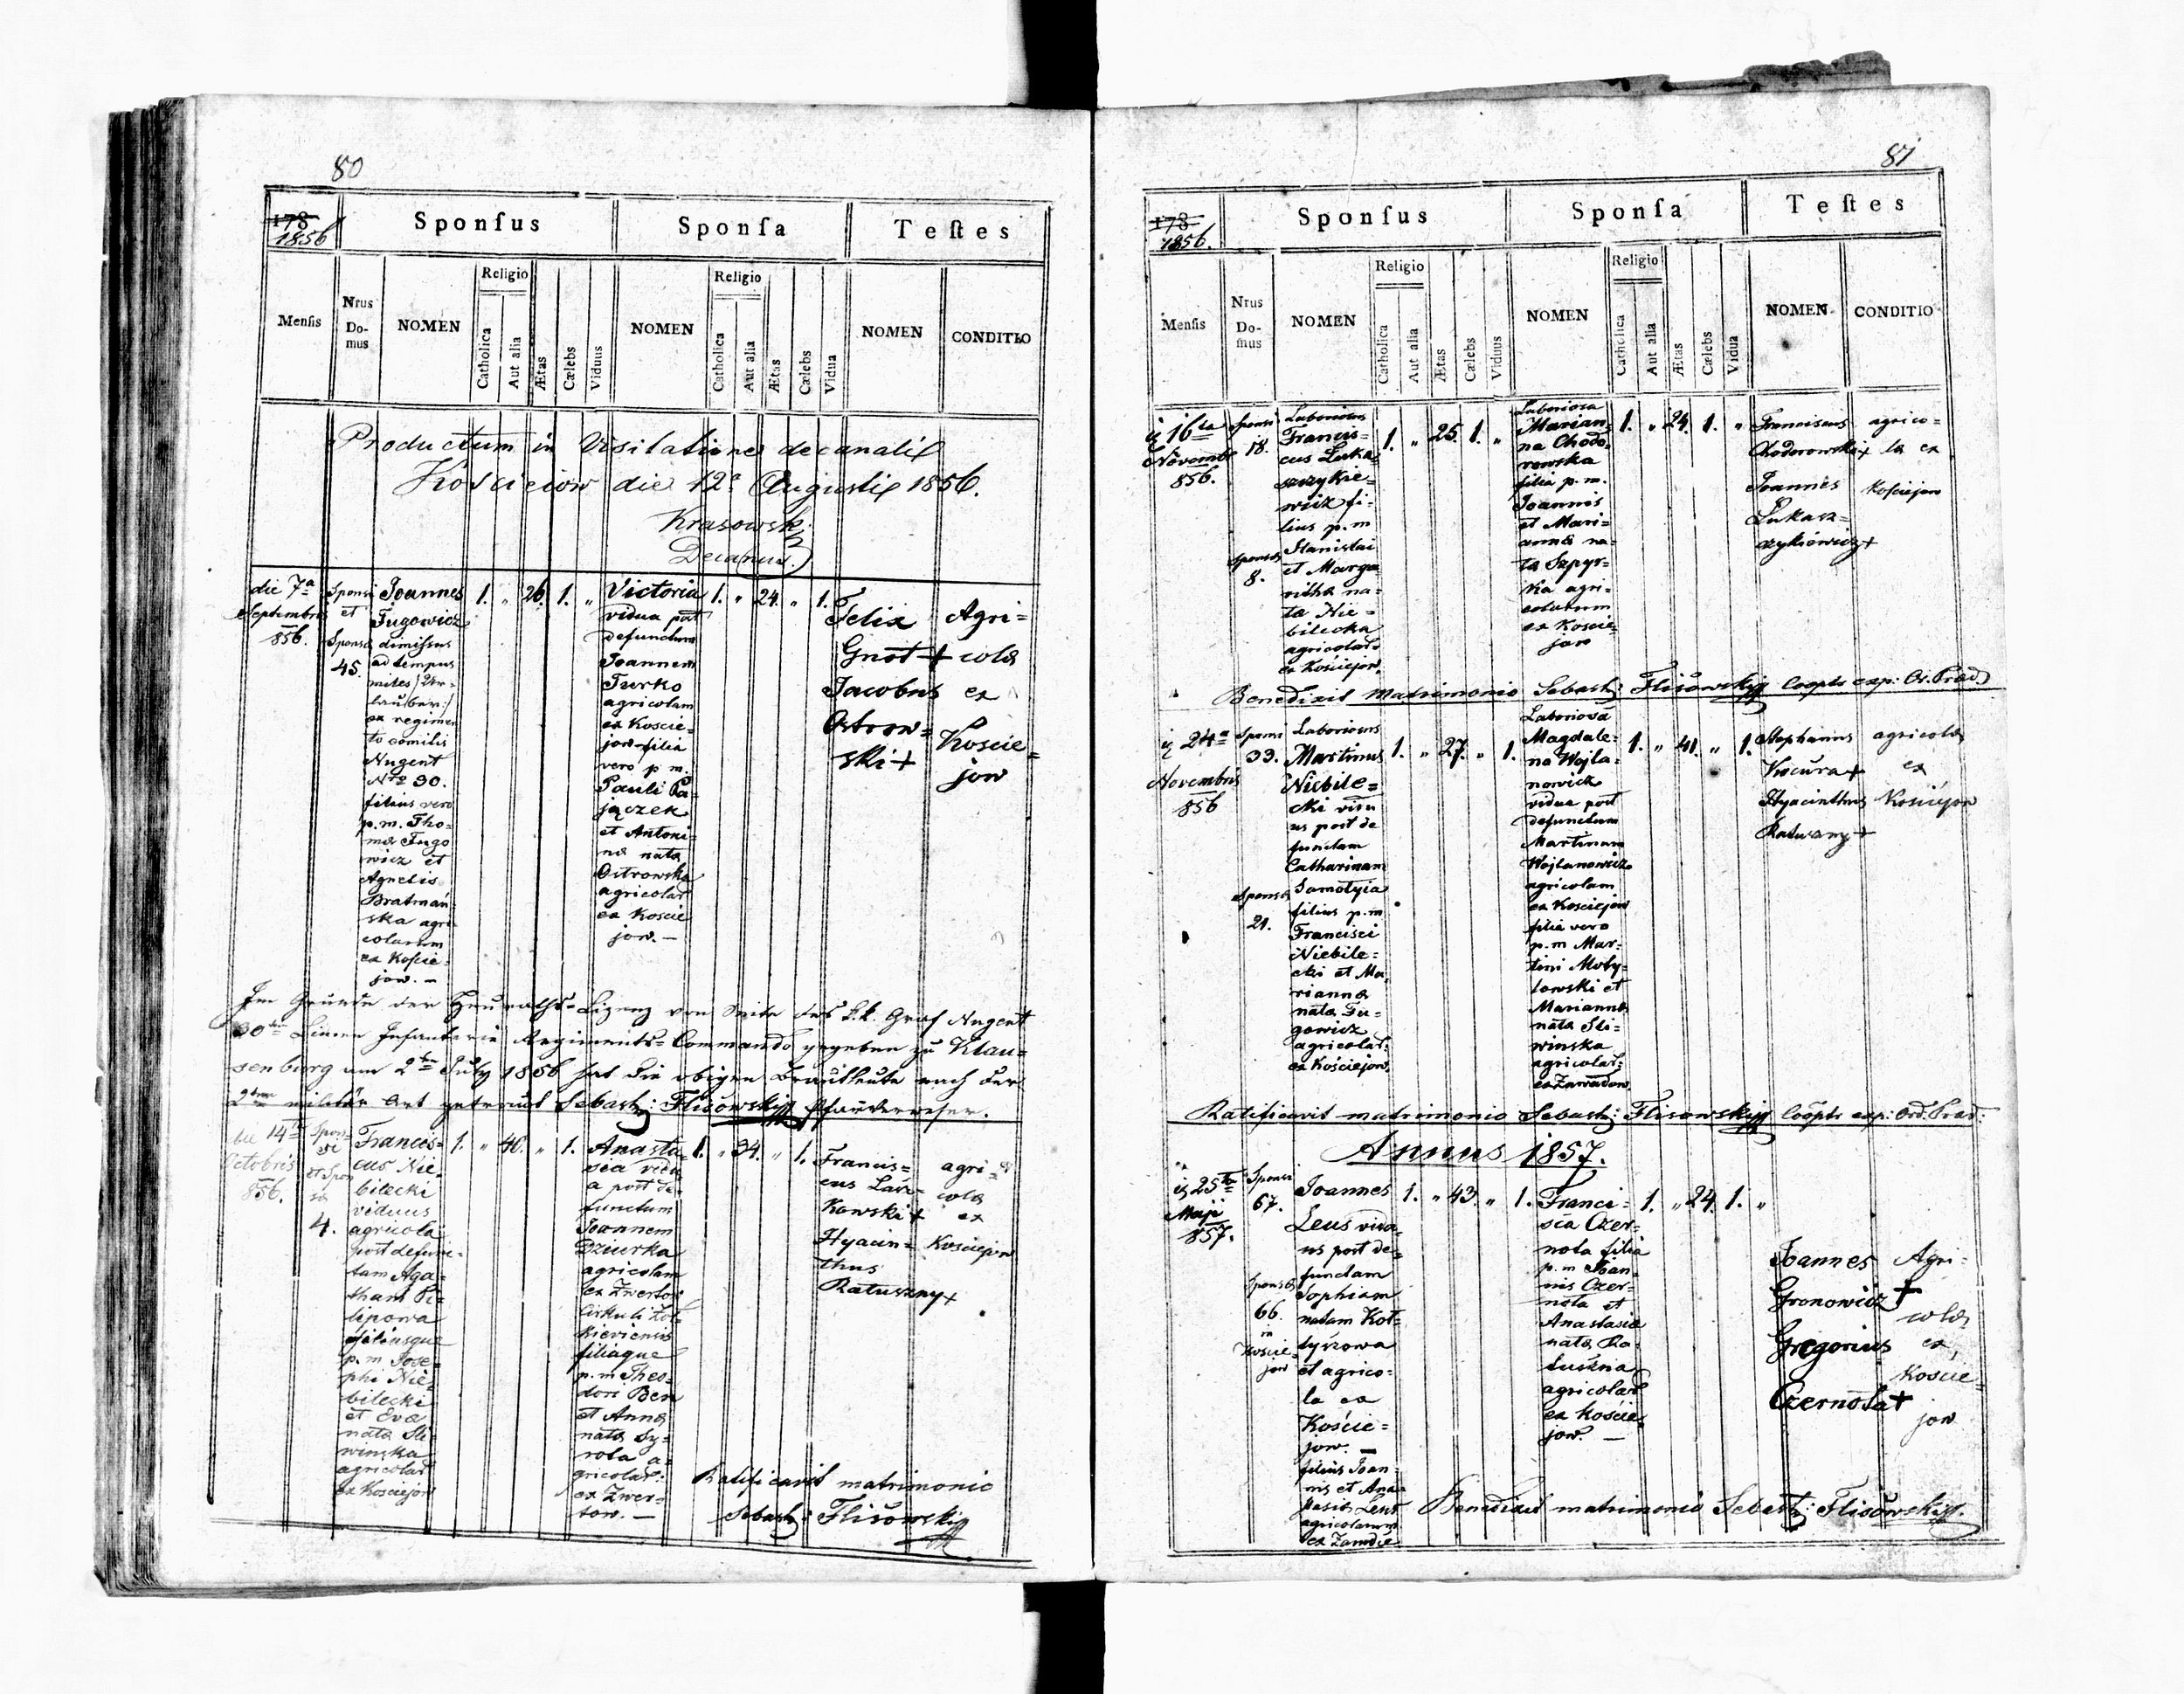 80
1856
Sponsus
Sponsa
Testes
Mensis
Nrus Domus
NOMEN
Religio
Catholica
Aut alia
Ætas
Cælebs
Viduus
NOMEN
Religio
Catholica
Aut alia
Ætas
Cælebs
Vidua
NOMEN
CONDITIO
Productum in Visitatione decanali
Kościeiow die 12a Augusti 1856.
Krasowski
Decanus
die 7a
Septembris
856.
Sponsi
et
Sponsa
45.
Joannes
Fugowicz
dimissus
ad tempus
miles
lauber:/
ex regimen
to comitis
Nugent
Nro 30.
filius vero
p.m. Tho-
ma Fugo
wicz et
Agnetis
Bratmań-
ska agri-
colarum
ex Koscie-
jow. —
1. „ 26. 1. „
Victoria
vidua post
defunctum
Joannem
Turko
agricolam
ex Koscie-
jow filia
vero p m.
Pauli Pa-
jączek
et Antoni-
na nata
Ostrowska
agricolar
ex Koscie
jow. —
1. „ 24. „ 1.
Felix
Gnot +
Jacobus
Ostrow=
ski +
Agri=
cola
ex
Koscie=
jow
Im Grunde der Heuraths-Lizenz von Seite des k.k. Graf Nugent
30ten Linien Infanterie Regiments-Commando gegeben zu Klau=
senburg am 2ten July 1856 hat die obigen Brautleute nach der
2ten militär Art getraut Sebast: Flisowski Pfarrverweser.
die 14ta
Octobris
856.
Spon-
si
et Spon
sa
4.
Francis=
cus Nie-
bilecki
viduus
agricola
post defunc-
tam Aga-
tham Pi-
lipowa
filiusque
p.m Jose-
phi Nie-
bilecki
et Eva
nata Sli-
winska
agricolar
ex Kosciejow
1. „ 40. „ 1.
Anasta-
sia vidu
a post de-
functum
Joannem
Dziurka
agricolam
ex Zwertow
Cirkuli Zol-
kieviensis
filiaque
p.m Theo-
dori Ben
et Anna
nata Sy-
rota a-
gricolar:
ex Zwer-
tow. —
1. „ 34. „ 1.
Francis=
cus Law-
kowski +
Hyacin=
thus
Ratuszny +
agri-
cola
ex
Kosciejow
Ratificavit matrimonio
Sebast: Flisowski
81
1856.
Sponsus
Sponsa
Testes
Mensis
Nrus Domus
NOMEN
Religio
Catholica
Aut alia
Ætas
Cælebs
Viduus
NOMEN
Religio
Catholica
Aut alia
Ætas
Cælebs
Vidua
NOMEN
CONDITIO
16ta
Novembr
856.
Sponsi
18.
Sponsa
8.
Laboriosus
Francis=
cus Luka
szczykie-
wicz fi-
lius p.m
Stanislai
et Marga
ritha na-
ta Nie-
bilecka
agricolar
ex Kościejow.
1. „ 25. 1. „
Laboriosa
Marian=
na Chodo-
rowska
filia p.m.
Joannis
et Mari=
anna na-
ta Szpyr-
ka agri-
colarum
ex Koscie-
jow
1. „ 24. 1. „
Franciscus
Chodorowski +
Joannes
Lukasz=
czykiewicz +
agrico=
la ex
Kosciejow
Benedixit matrimonio Sebast: Flisowski Coopts exp: Or. Prad
24a
Novembris
856
Sponsi
33.
Sponsa
21.
Laboriosus
Martinus
Niebile=
cki vidu
us post de
functam
Catharinam
Samotyia
filius p.m
Francisci
Niebile-
cki et Ma
rianna
nata Fu-
gowicz
agricolar:
ex Kościejow.
1. „ 27. „ 1.
Laboriosa
Magdale-
na Wojta-
nowicz
vidua post
defunctum
Martinum
Wojtanowicz
agricolam
ex Kosciejow
filia vero
p.m Mar-
tini Moty-
lowski et
Marianna
nata Sli-
winska
agricolar:
ex Zawadow.
1. „ 41. „ 1.
Stephanus
Kocura +
Hyacinthus
Ratuszny +
agricola
ex
Kosciejow
Ratificavit matrimonio Sebast: Flisowski Coopts exp: Ord. Prad:
Annus 1857.
25ta
Maji
857.
Sponsi
67.
Sponsa
66.
in
Koscie-
jow
Joannes
Leus vidu-
us post de-
functam
Sophiam
natam Kot-
tyszowa
et agrico-
la ex
Koście=
jow. —
filius Joan-
nis et Ana-
stasia Leus
agricolarum
ex Zawadow
1. „ 43. „ 1.
Franci=
sca Czer-
nota filia
p.m Joan-
nis Czer-
nota et
Anastasia
nata Ra-
tuszna
agricolar
ex Koscie-
jow. —
1. „ 24. 1. „
Joannes
Gronowicz +
Gregorius
Czernota +
Agri-
cola
ex
Koscie-
jow
Benedixit matrimonio Sebast: Flisowski.